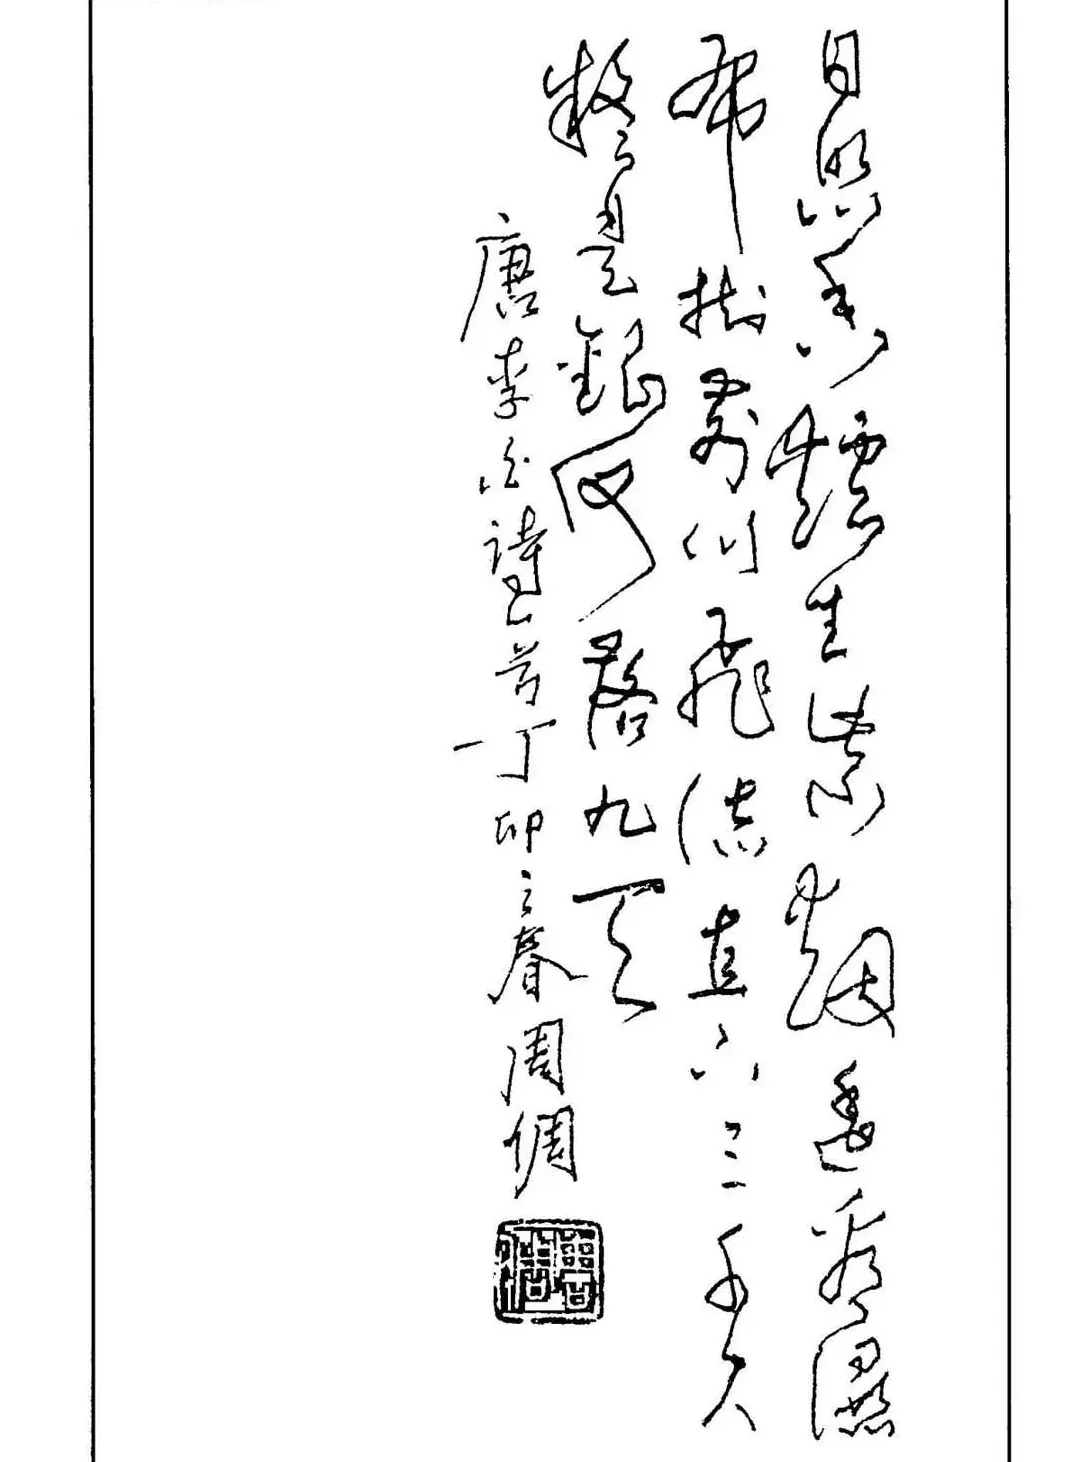 日照香爐生紫烟遙看瀑
布掛前川飛流直下三千尺
疑是銀河落九天
唐李白詩一首丁卯之春周倜
周倜